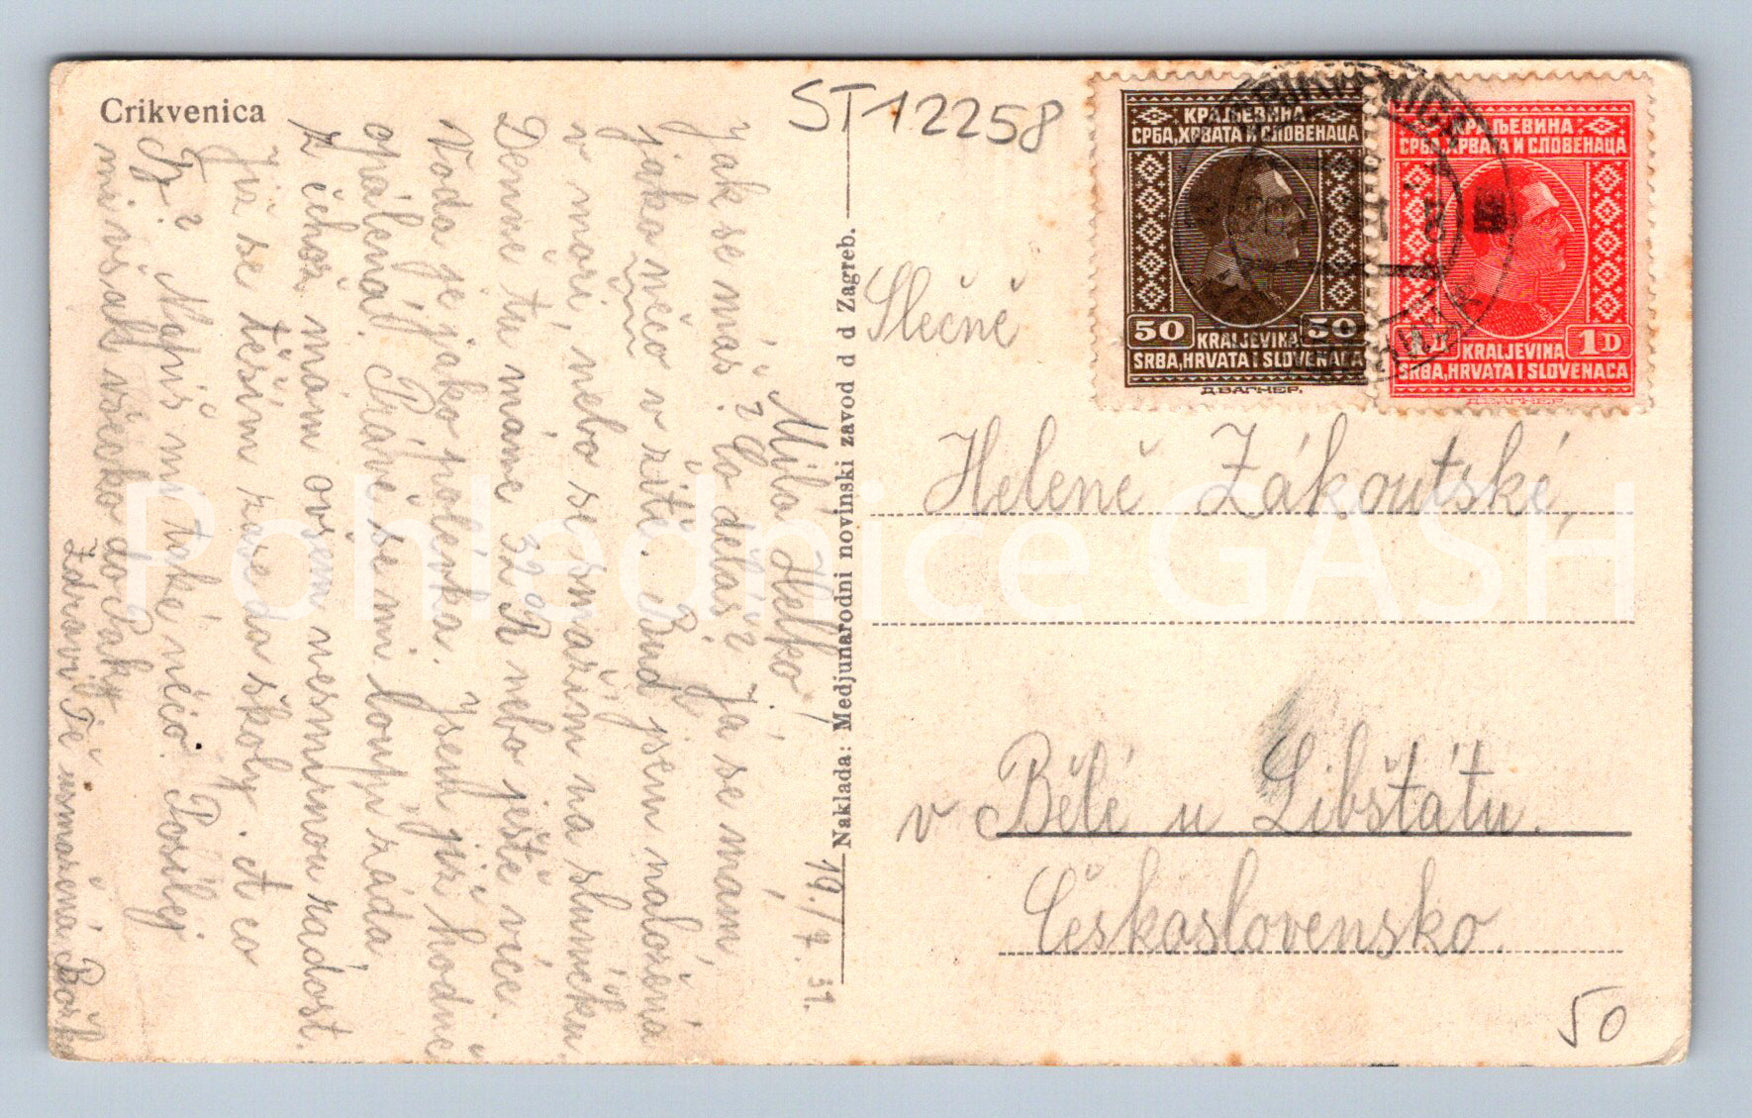 Crikvenica
ST12258
Milá Helko!
19./7. 31.
Jak se máš? Co děláš? Já se mám,
jako něco v žitě. Buď jsem naložená
v moři, nebo se smažím na sluníčku.
Denně tu máme 32°R nebo ještě více.
Voda je jako polévka. Jsem již hodně
opálená. Právě se mi loupi záda,
z čehož mám ovšem nesmírnou radost.
Již se těším zase do školy. A co
Ty? Napiš mi také něco. Posílej
mi však všecko do Paky
Zdraví Tě usmažená Boža
Naklada: Medjunarodni novinski zavod d d Zagreb.
КРАЉЕВИНА
СРБА, ХРВАТА И СЛОВЕНАЦА
50 50
KRALJEVINA
SRBA, HRVATA I SLOVENACA
Д.ВАГНЕР.
КРАЉЕВИНА
СРБА, ХРВАТА И СЛОВЕНАЦА
1D
KRALJEVINA
SRBA, HRVATA I SLOVENACA
Д.ВАГНЕР.
CRIKVENICA
Slečně
Heleně Zákoutské,
v Bělé u Libštátu.
Československo.
50
Pohlednice GASH